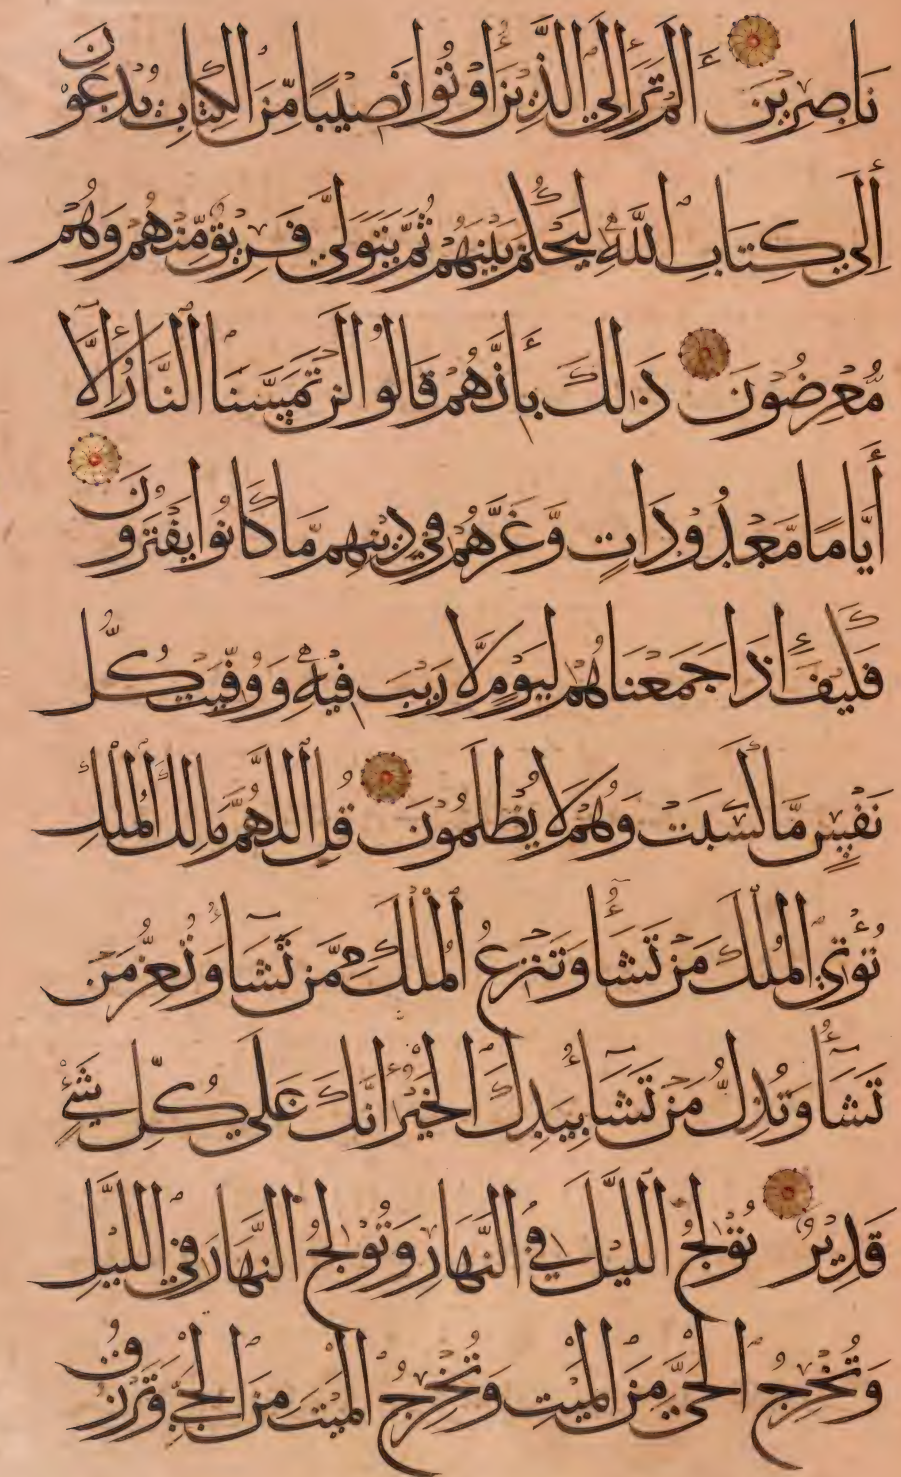 نَاصِرِينَ أَلَمْ تَرَ إِلَى الَّذِينَ أُوتُوا نَصِيبًا مِّنَ الْكِتَابِ يُدْعَوْنَ
إِلَى كِتَابِ اللَّهِ لِيَحْكُمَ بَيْنَهُمْ ثُمَّ يَتَوَلَّى فَرِيقٌ مِّنْهُمْ وَهُم
مُّعْرِضُونَ ذَلِكَ بِأَنَّهُمْ قَالُوا لَن تَمَسَّنَا النَّارُ إِلَّا
أَيَّامًا مَّعْدُودَاتٍ وَّغَرَّهُمْ فِي دِينِهِم مَّا كَانُوا يَفْتَرُونَ
فَكَيْفَ إِذَا جَمَعْنَاهُمْ لِيَوْمٍ لَّا رَيْبَ فِيهِ وَوُفِّيَتْ كُلُّ
نَفْسٍ مَّا كَسَبَتْ وَهُمْ لَا يُظْلَمُونَ قُلِ اللَّهُمَّ مَالِكَ الْمُلْكِ
تُؤْتِي الْمُلْكَ مَنْ تَشَاءُ وَتَنْزِعُ الْمُلْكَ مِمَّنْ تَشَآءُ وَتُعِزُّ مَنْ
تَشَآءُ وَتُذِلُّ مَنْ تَشَآءُ بِيَدِكَ الْخَيْرُ إِنَّكَ عَلَى كُلِّ شَيْءٍ
قَدِيرٌ تُولِجُ اللَّيْلَ فِي النَّهَارِ وَتُولِجُ النَّهَارَ فِي اللَّيْلِ
وَتُخْرِجُ الْحَيَّ مِنَ الْمَيِّتِ وَتُخْرِجُ الْمَيِّتَ مِنَ الْحَيِّ وَتَرْزُقُ